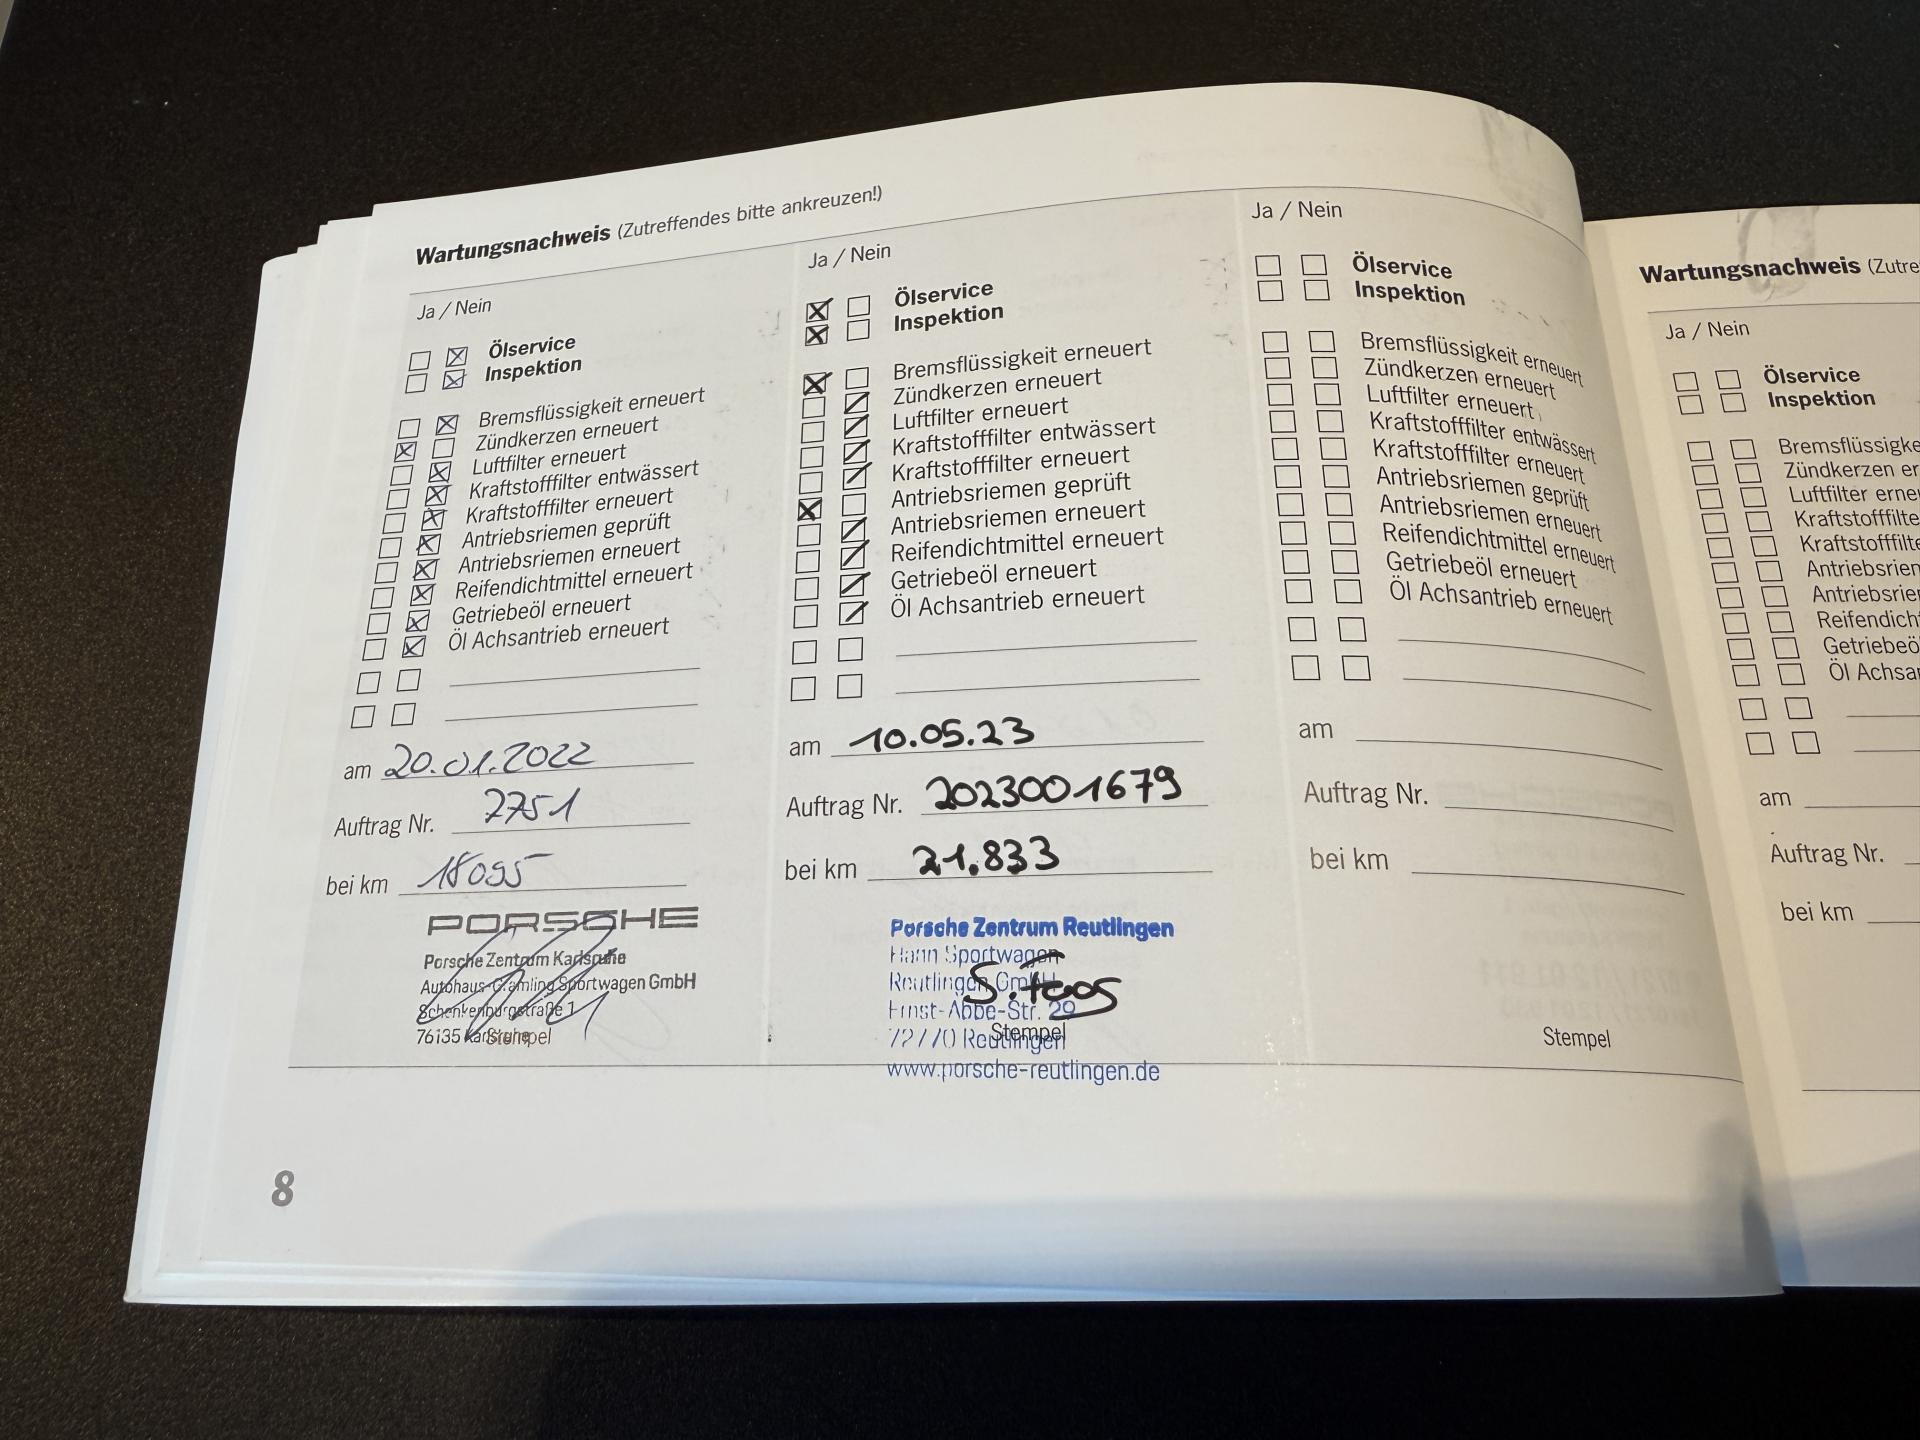 Wartungsnachweis (Zutreffendes bitte ankreuzen!)
Ja / Nein
Ölservice
Inspektion
Bremsflüssigkeit erneuert
Zündkerzen erneuert
Luftfilter erneuert
Kraftstofffilter entwässert
Kraftstofffilter erneuert
Antriebsriemen geprüft
Antriebsriemen erneuert
Reifendichtmittel erneuert
Getriebeöl erneuert
Öl Achsantrieb erneuert
am 20.01.2022
Auftrag Nr. 2751
bei km 18095
PORSCHE
Porsche Zentrum Karlsruhe
Autohaus Gramling Sportwagen GmbH
Schenkenburgstraße 1
76135 Karlsruhe
Stempel
Ja / Nein
Ölservice
Inspektion
Bremsflüssigkeit erneuert
Zündkerzen erneuert
Luftfilter erneuert
Kraftstofffilter entwässert
Kraftstofffilter erneuert
Antriebsriemen geprüft
Antriebsriemen erneuert
Reifendichtmittel erneuert
Getriebeöl erneuert
Öl Achsantrieb erneuert
am 10.05.23
Auftrag Nr. 2023001679
bei km 21.833
Porsche Zentrum Reutlingen
Hann Sportwagen
Reutlingen GmbH
Ernst-Abbe-Str. 29
72770 Reutlingen
Stempel
www.porsche-reutlingen.de
Ja / Nein
Ölservice
Inspektion
Bremsflüssigkeit erneuert
Zündkerzen erneuert
Luftfilter erneuert
Kraftstofffilter entwässert
Kraftstofffilter erneuert
Antriebsriemen geprüft
Antriebsriemen erneuert
Reifendichtmittel erneuert
Getriebeöl erneuert
Öl Achsantrieb erneuert
am
Auftrag Nr.
bei km
Stempel
8
Wartungsnachweis (Zutre
Ja / Nein
Ölservice
Inspektion
Bremsflüssigke
Zündkerzen er
Luftfilter erneu
Kraftstofffilte
Kraftstofffilte
Antriebsrien
Antriebsrier
Reifendicht
Getriebeö
Öl Achsa
am
Auftrag Nr.
bei km